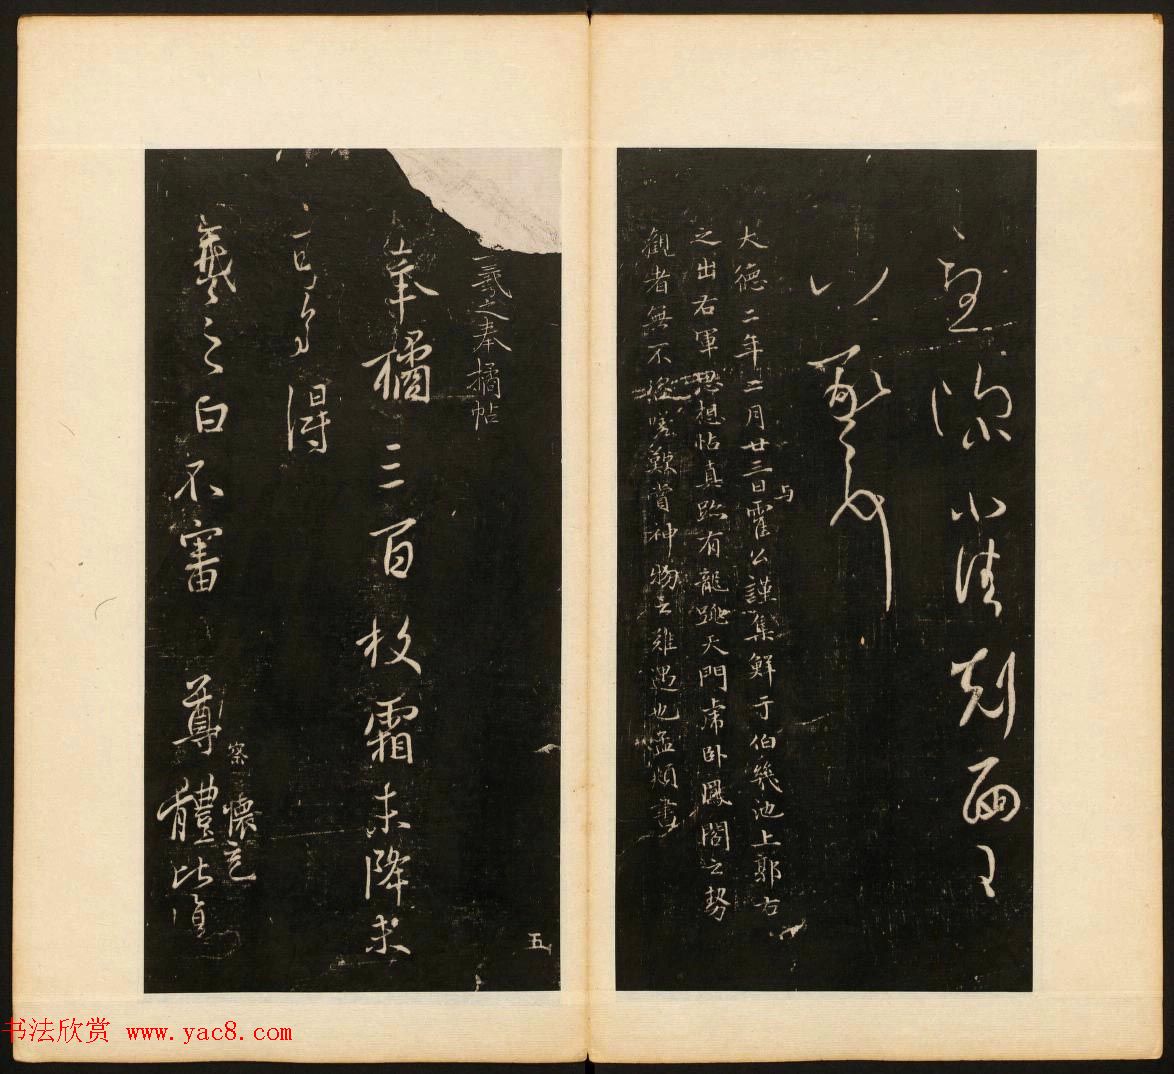 小佳 面
大德二年二月廿三日与霍公謹集鮮于伯幾池上郭右
之出右軍思想帖真跡有龍跳天門虎臥鳳閣之勢
觀者無不咨嗟歎賞神物之難遇也孟頫書
羲之奉橘帖
五
奉橘三百枚霜未降未
可多得
察 懷充
羲之白不審 尊體比復
书法欣赏 www.yac8.com